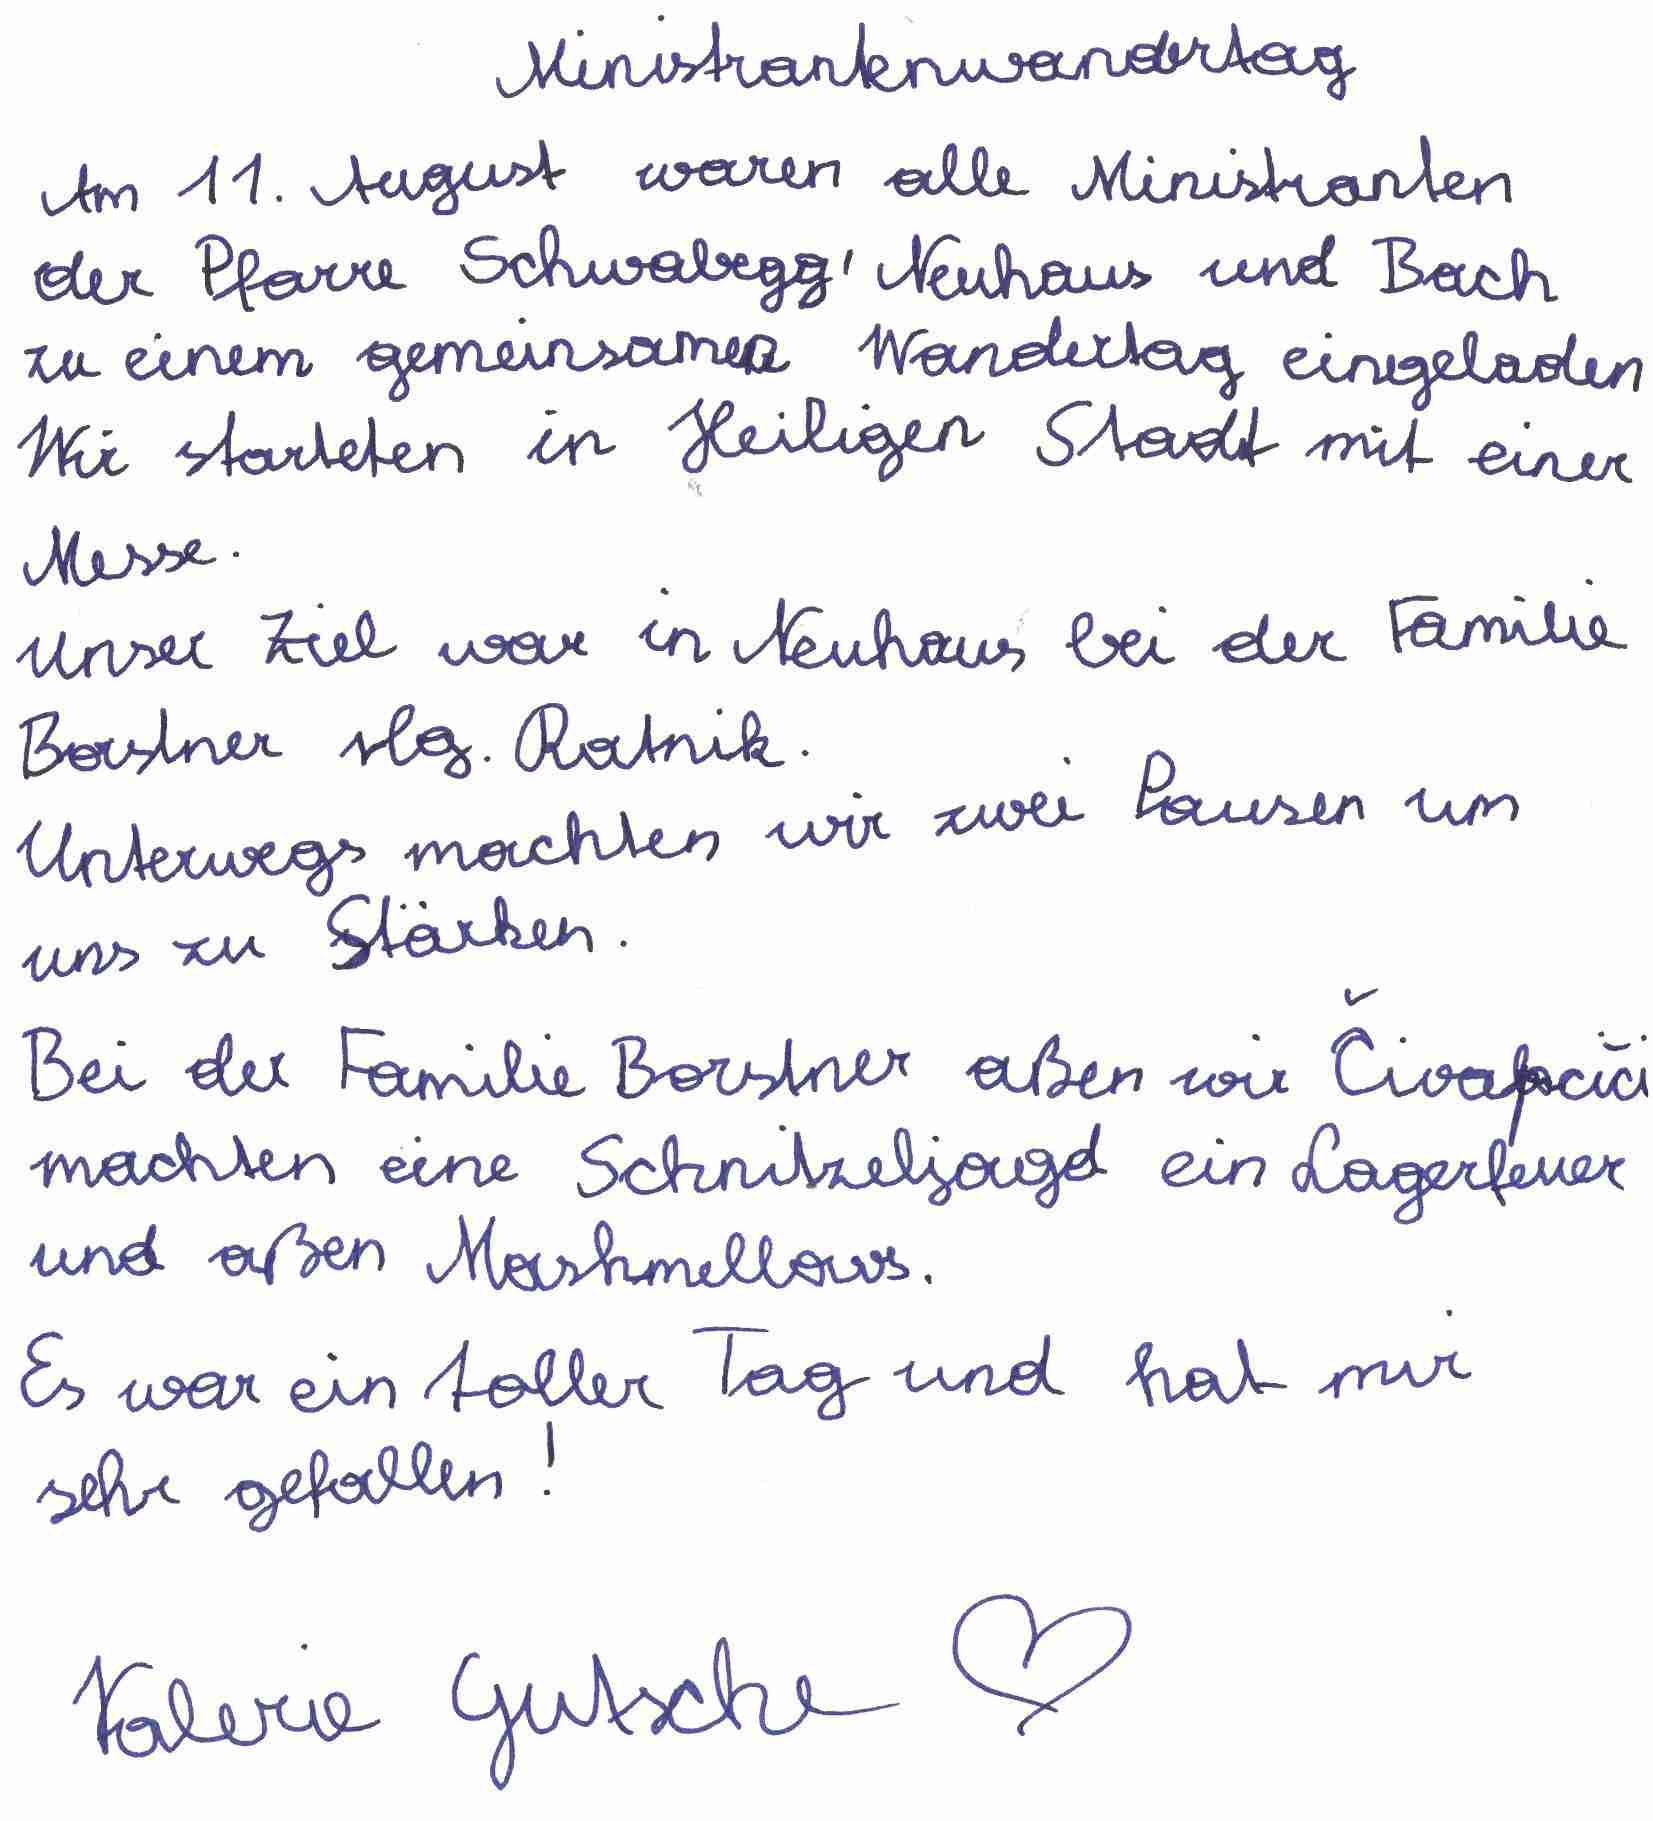 Ministrantenwandertag
Am 11. August waren alle Ministranten
der Pfarre Schwabegg, Neuhaus und Bach
zu einem gemeinsamen Wandertag eingeladen
Wir starteten in Heiligen Stadt mit einer
Messe.
Unser Ziel war in Neuhaus bei der Familie
Borstner vlg. Ratnik.
Unterwegs machten wir zwei Pausen um
uns zu Stärken.
Bei der Familie Borstner aßen wir Čivapčiči
machten eine Schnitzeljagd ein Lagerfeuer
und aßen Mashmellows.
Es war ein toller Tag und hat mir
sehr gefallen!
Valerie Gutsche